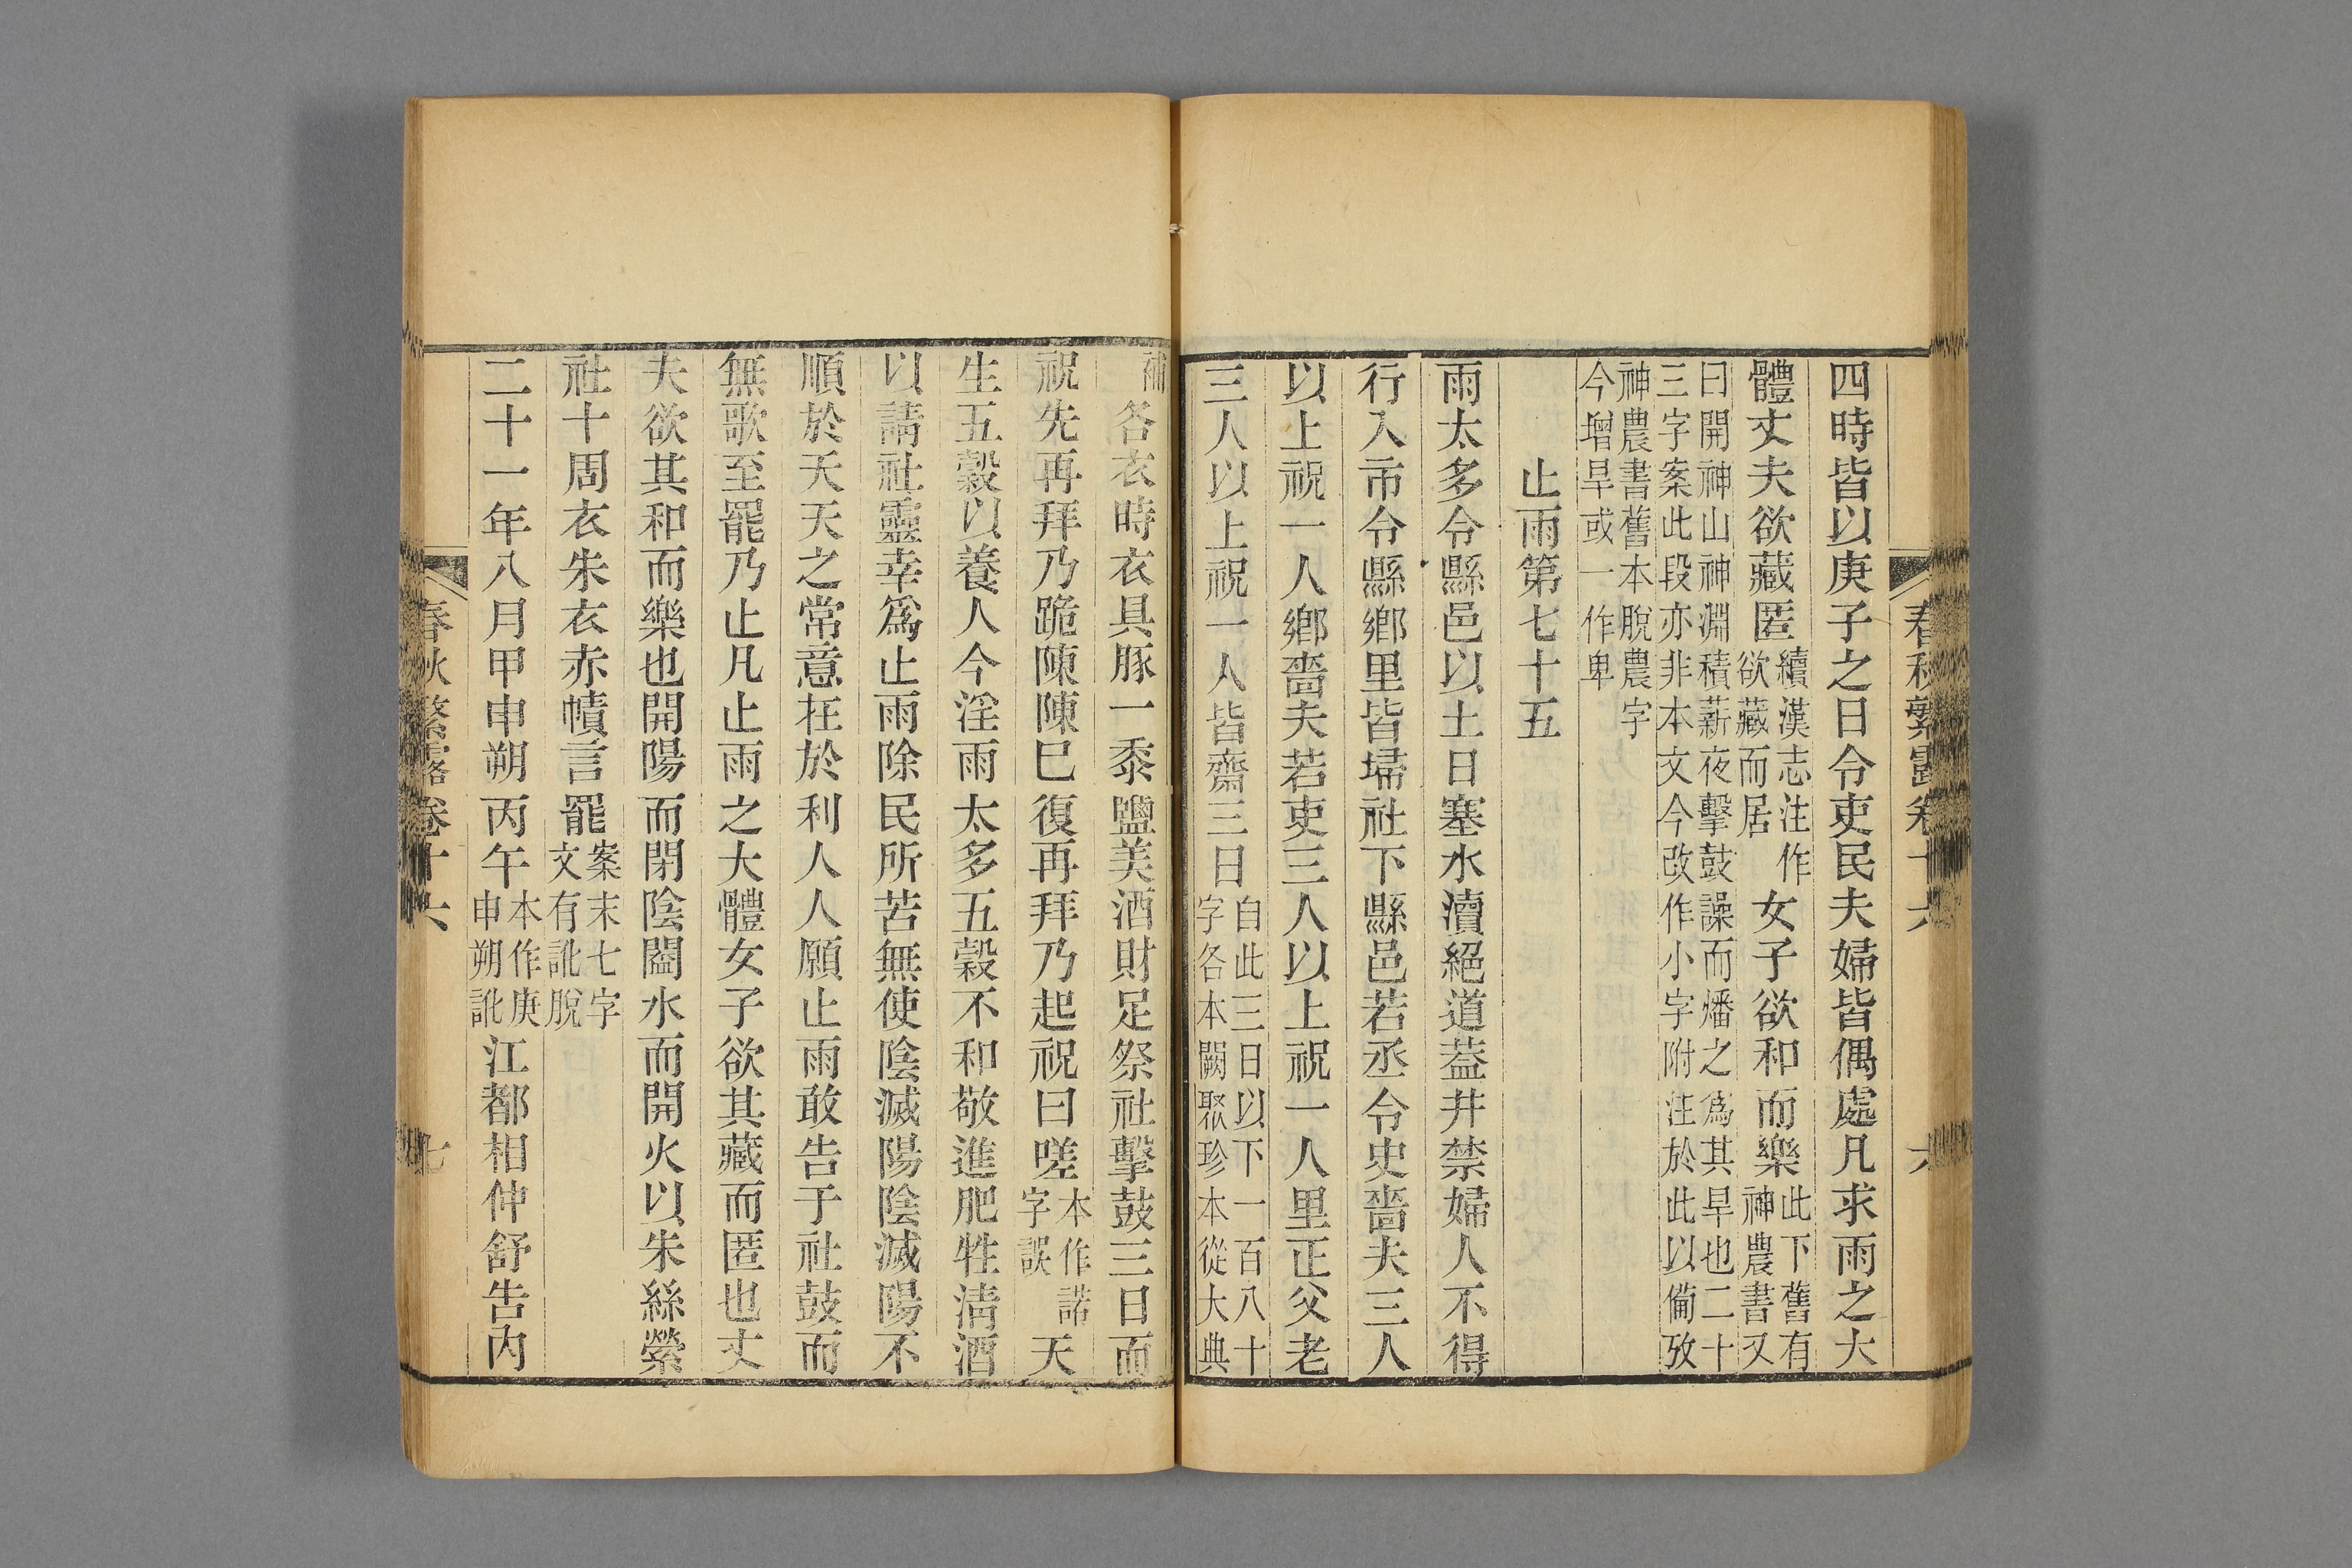 春秋繁露卷十六
六
四時皆以庚子之日令吏民夫婦皆偶處凡求雨之大
體丈夫欲藏匿續漢志注作欲藏而居女子欲和而樂此下舊有神農書又
曰開神山神淵積薪夜擊鼓譟而燔之爲其旱也二十
三字案此段亦非本文今改作小字附注於此以備攷
神農書舊本脫農字
今增旱或一作卑
止雨第七十五
雨太多令縣邑以土日塞水瀆絕道蓋井禁婦人不得
行入市令縣鄉里皆埽社下縣邑若丞令史嗇夫三人
以上祝一人鄉嗇夫若吏三人以上祝一人里正父老
三人以上祝一人皆齋三日自此三日以下一百八十字各本闕聚珍本從大典
補各衣時衣具豚一黍鹽美酒財足祭社擊鼓三日而
祝先再拜乃跪陳陳巳復再拜乃起祝曰嗟本作諾字誤天
生五穀以養人今淫雨太多五穀不和敬進肥牲淸酒
以請社靈幸爲止雨除民所苦無使陰滅陽陰滅陽不
順於天天之常意在於利人人願止雨敢告于社鼓而
無歌至罷乃止凡止雨之大體女子欲其藏而匿也丈
夫欲其和而樂也開陽而閉陰闔水而開火以朱絲縈
社十周衣朱衣赤幘言罷案末七字文有訛脫
二十一年八月甲申朔丙午本作庚申朔訛江都相仲舒告內
春秋繁露卷十六
七